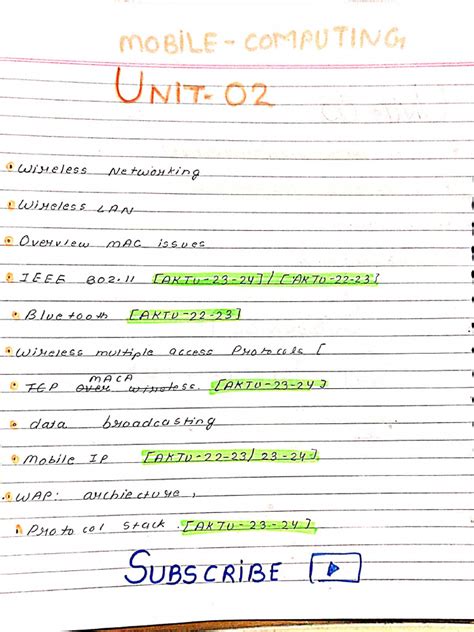 MOBILE-COMPUTING
UNIT-02
Wireless Networking
Wireless LAN
Overview MAC issues
IEEE 802.11 [AKTU-23-24] / [AKTU-22-23]
Bluetooth [AKTU-22-23]
Wireless multiple access Protocols [
MACA
TCP over wireless. [AKTU-23-24]
data broadcasting
Mobile IP [AKTU-22-23/ 23-24]
WAP: archiecture,
Protocol stack. [AKTU-23-24]
SUBSCRIBE